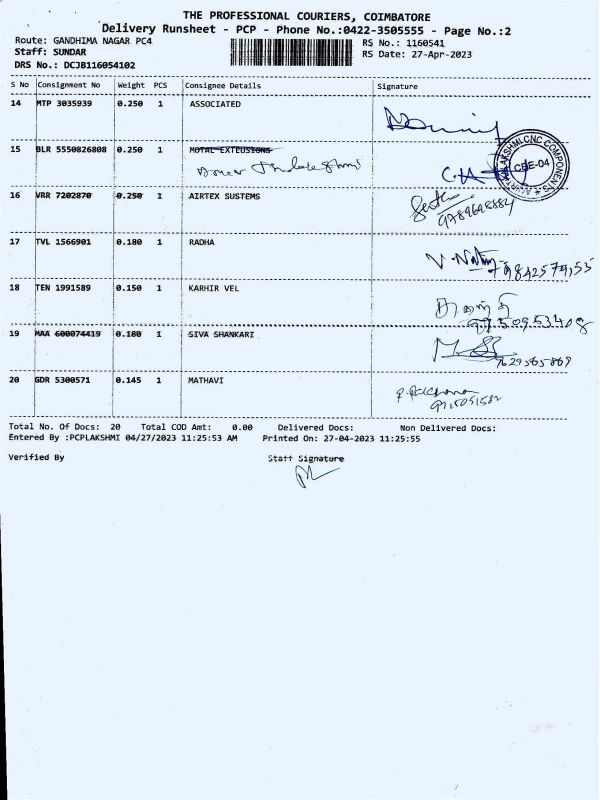 THE PROFESSIONAL COURIERS, COIMBATORE
Delivery Runsheet - PCP - Phone No.:0422-3505555 - Page No.:2
Route: GANDHIMA NAGAR PC4
RS No.: 1160541
Staff: SUNDAR
RS Date: 27-Apr-2023
DRS No.: DCJB116054102
S No Consignment No Weight PCS Consignee Details Signature
14 MTP 3035939 0.250 1 ASSOCIATED
15 BLR 5550826808 0.250 1 MOTAL EXTEUSIONS
CBE-04
16 VRR 7202870 0.250 1 AIRTEX SUSTEMS
9789698884
17 TVL 1566901 0.180 1 RADHA
18 TEN 1991589 0.150 1 KARHIR VEL
19 MAA 600074419 0.180 1 SIVA SHANKARI
7629565869
20 GDR 5300571 0.145 1 MATHAVI
Total No. Of Docs: 20 Total COD Amt: 0.00 Delivered Docs: Non Delivered Docs:
Entered By :PCPLAKSHMI 04/27/2023 11:25:53 AM Printed On: 27-04-2023 11:25:55
Verified By Staff Signature